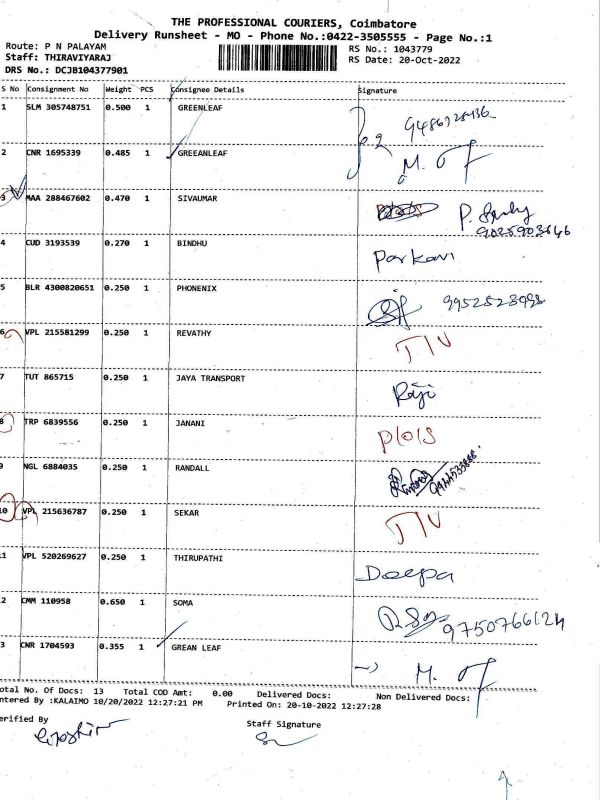 THE PROFESSIONAL COURIERS, Coimbatore
Delivery Runsheet - MO - Phone No.:0422-3505555 - Page No.:1
Route: P N PALAYAM
RS No.: 1043779
Staff: THIRAVIYARAJ
RS Date: 20-Oct-2022
DRS No.: DCJB104377901
S No Consignment No Weight PCS Consignee Details Signature
1 SLM 305748751 0.500 1 GREENLEAF
2 CNR 1695339 0.485 1 GREEANLEAF
3 MAA 288467602 0.470 1 SIVAUMAR
4 CUD 3193539 0.270 1 BINDHU Parkavi
5 BLR 4300820651 0.250 1 PHONENIX
6 VPL 215581299 0.250 1 REVATHY
7 TUT 865715 0.250 1 JAYA TRANSPORT Raji
8 TRP 6839556 0.250 1 JANANI
9 NGL 6884035 0.250 1 RANDALL
10 VPL 215636787 0.250 1 SEKAR
1 VPL 520269627 0.250 1 THIRUPATHI Deepa
2 CMM 110958 0.650 1 SOMA 9750766124
3 CNR 1704593 0.355 1 GREAN LEAF
otal No. Of Docs: 13 Total COD Amt: 0.00 Delivered Docs: Non Delivered Docs:
ntered By :KALAIMO 10/20/2022 12:27:21 PM Printed On: 20-10-2022 12:27:28
erified By
Staff Signature